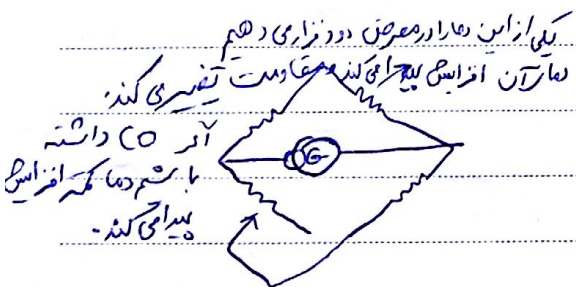 یکی از این دما را در معرض دود قرار می دهیم
دمای آن افزایش پیدا می کند مقاومت تغییر می کند.
اگر CO داشته
باشیم دما کمتر افزایش
پیدا می کند.
G